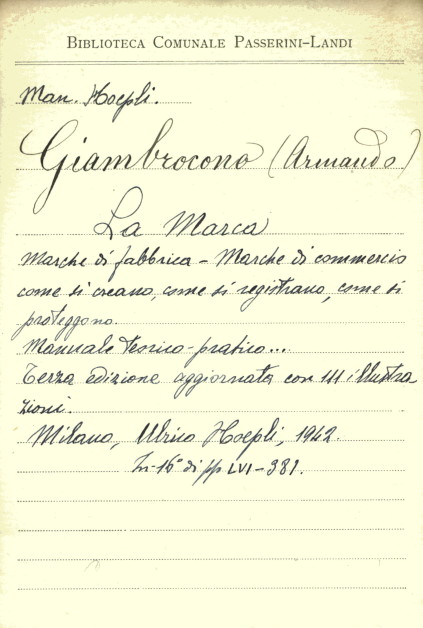 BIBLIOTECA COMUNALE PASSERINI-LANDI
Man. Hoepli.
Giambrocono (Armando)
La Marca
Marche di fabbrica - Marche di commercio
come si creano, come si registrano, come si
proteggono.
Manuale teorico-pratico...
Terza edizione aggiornata con 111 illustra
zioni.
Milano, Ulrico Hoepli, 1942.
In-16° di pp LVI-381.